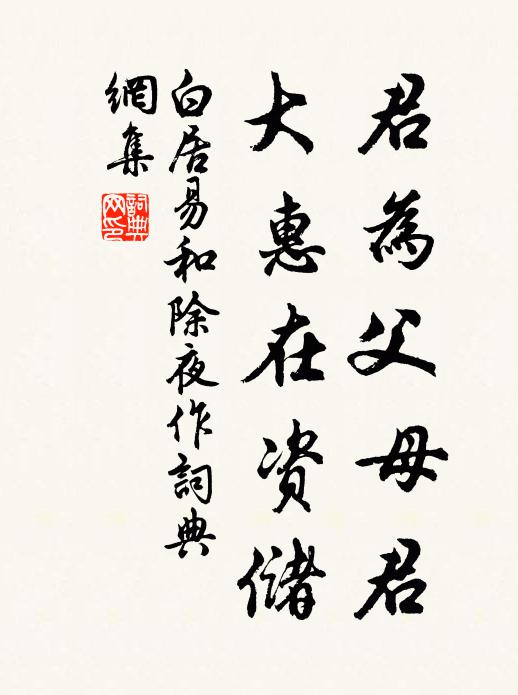 君為父母君
大惠在資儲
白居易和除夜作詞典
網集
詞典
网印